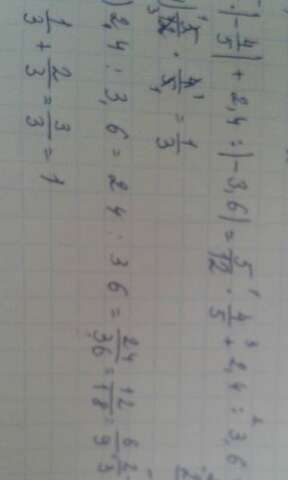 · |-4/5| + 2,4 : |-3,6| = 5/12 ¹ · 4/5 ³ + 2,4 ² : 3,6
) 5/12 · 4/5 = 1/3
) 2,4 : 3,6 = 24 : 36 = 24/36 = 12/18 = 6/9 = 2/3
1/3 + 2/3 = 3/3 = 1